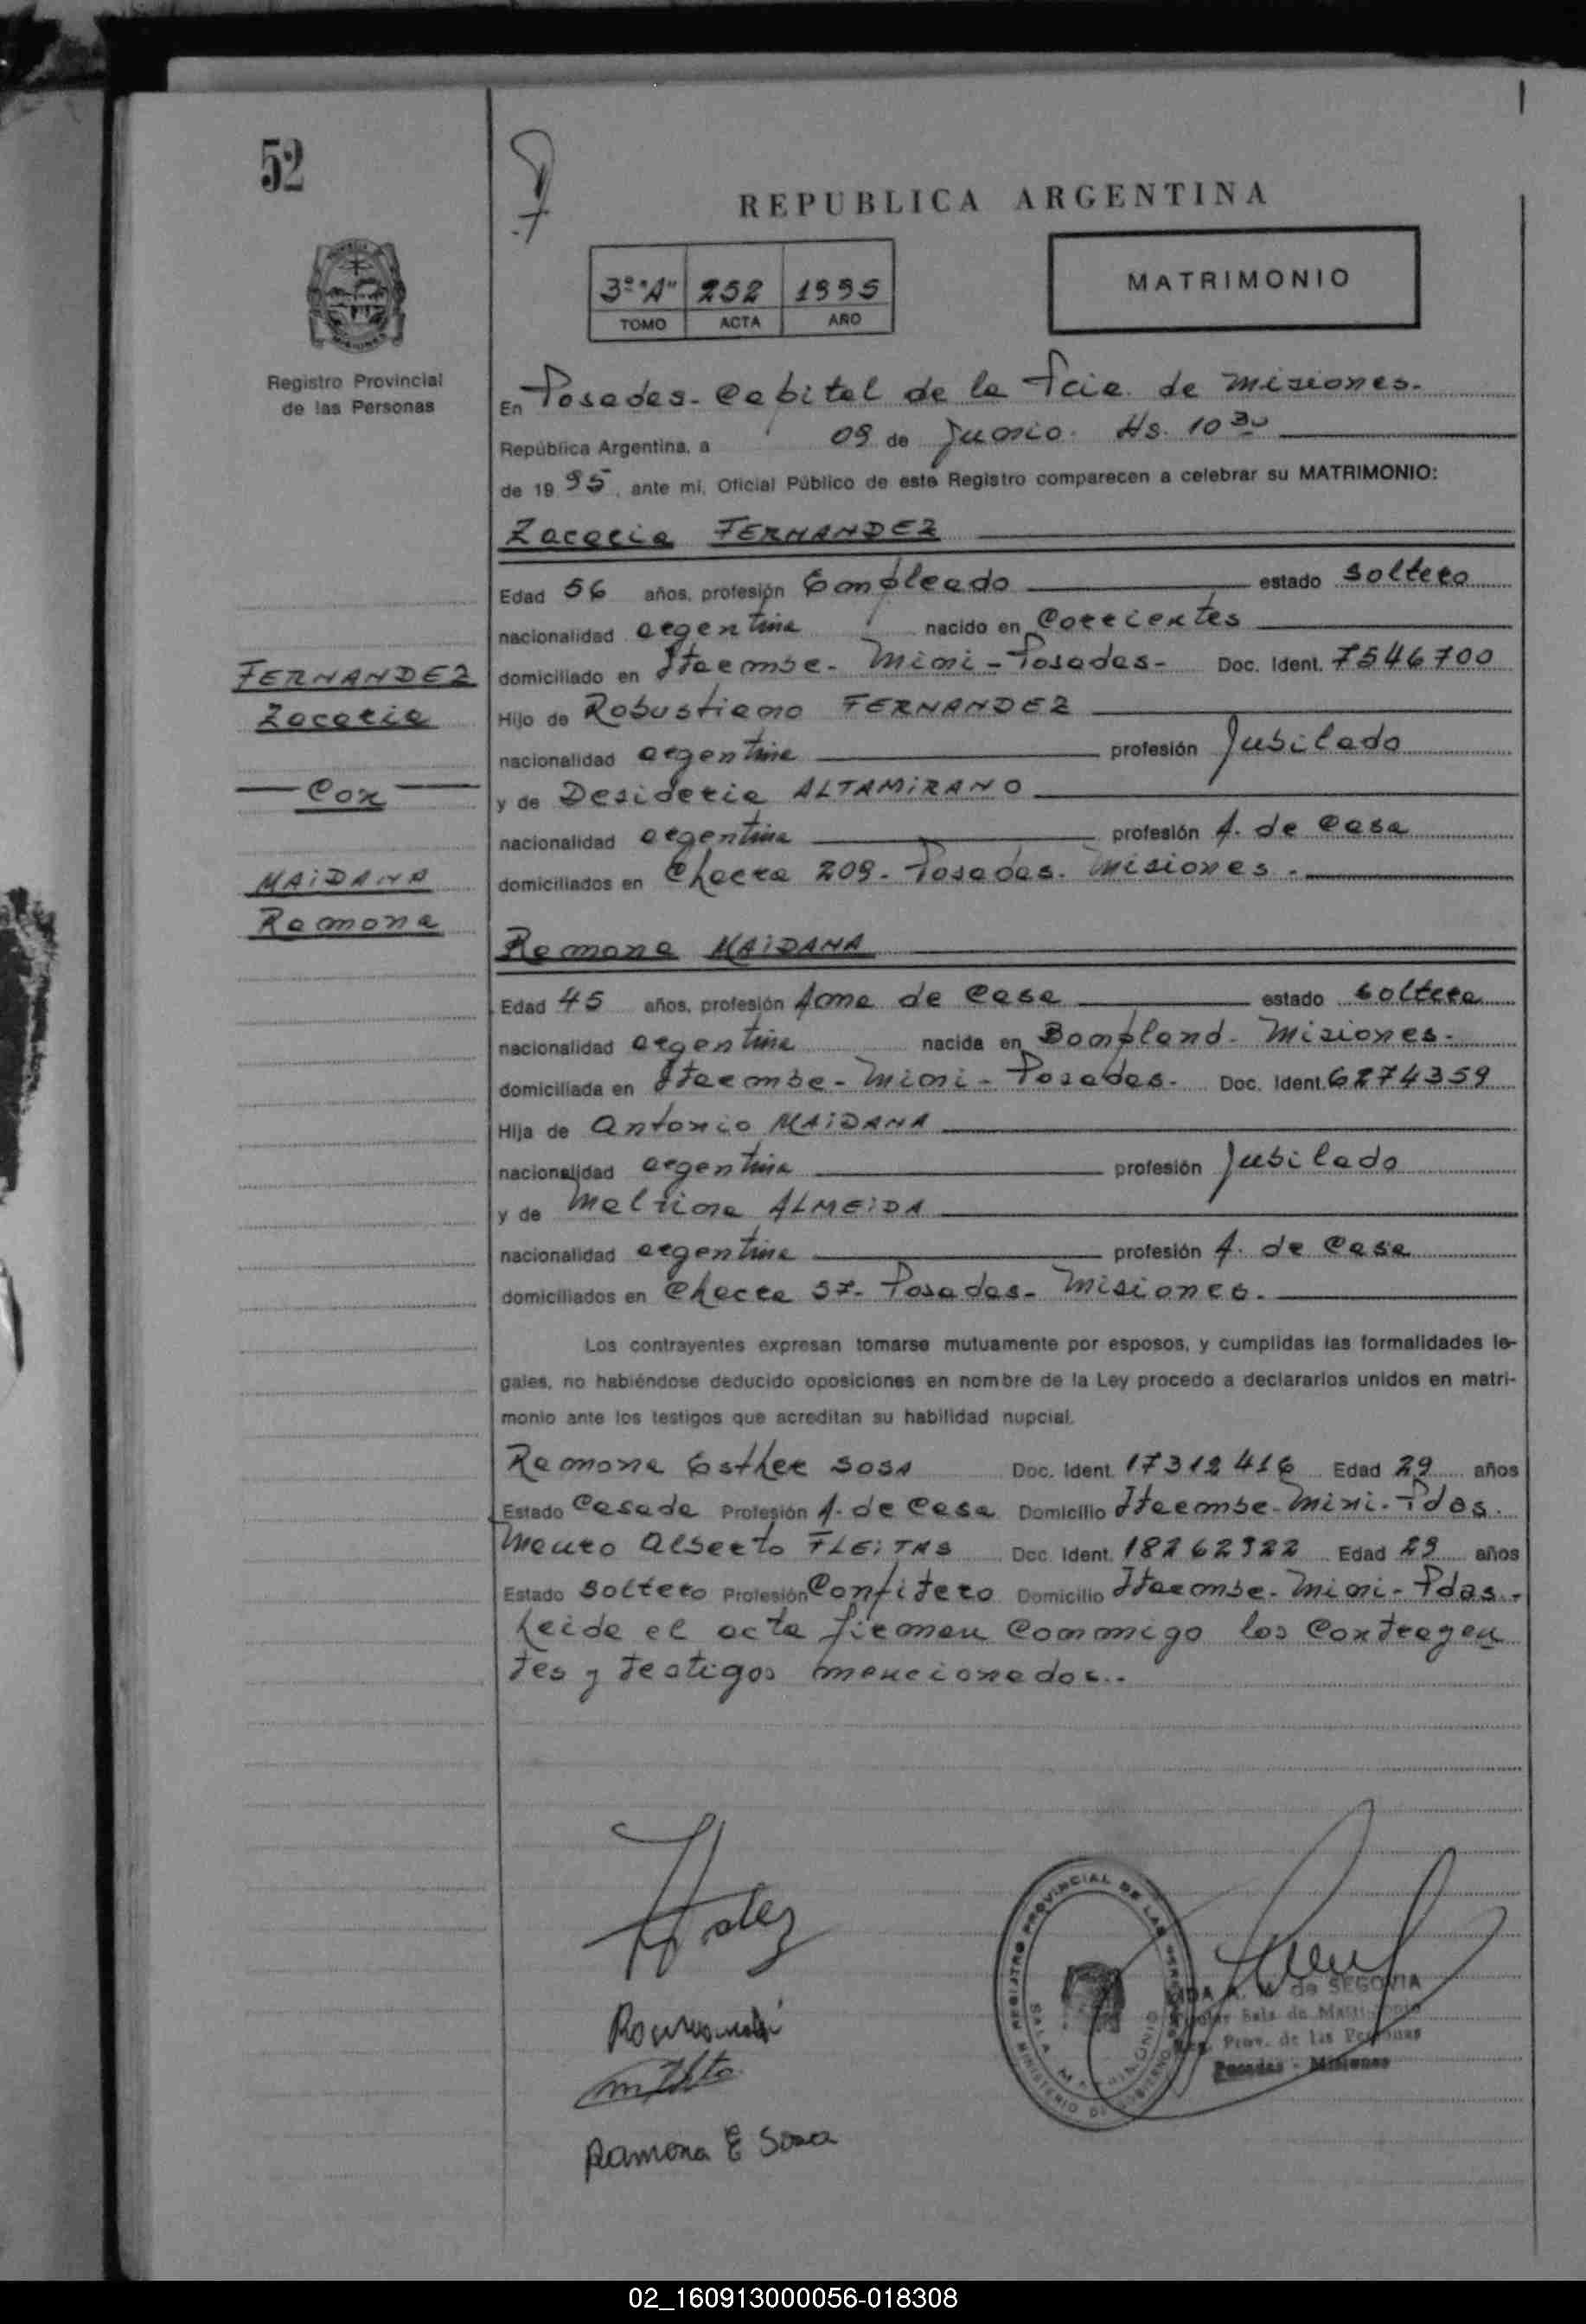 52
REPUBLICA ARGENTINA
3º "A" 252 1995
TOMO ACTA AÑO
MATRIMONIO
Registro Provincial
de las Personas
En Posadas - Capital de la Pcia. de Misiones.
República Argentina, a 09 de Junio. Hs. 10 30
de 1995, ante mi, Oficial Público de este Registro comparecen a celebrar su MATRIMONIO:
Zacaria FERNANDEZ
Edad 56 años, profesión Empleado estado soltero
nacionalidad argentina nacido en Corrientes
domiciliado en Itaembe - Mini - Posadas - Doc. Ident. 7546700
Hijo de Robustiano FERNANDEZ
nacionalidad argentina profesión Jubilado
y de Desideria ALTAMIRANO
nacionalidad argentina profesión A. de Casa
domiciliados en Chacra 209 - Posadas - Misiones.
FERNANDEZ
Zacaria
Con
MAIDANA
Ramona
Ramona MAIDANA
Edad 45 años, profesión Ama de Casa estado soltera
nacionalidad argentina nacida en Bompland - Misiones.
domiciliada en Itaembe - Mini - Posadas - Doc. Ident. 6274359
Hija de Antonio MAIDANA
nacionalidad argentina profesión Jubilado
y de ALMEIDA
nacionalidad argentina profesión A. de Casa
domiciliados en Chacra 57 - Posadas - Misiones.
Los contrayentes expresan tomarse mutuamente por esposos, y cumplidas las formalidades le-
gales, no habiéndose deducido oposiciones en nombre de la Ley procedo a declararlos unidos en matri-
monio ante los testigos que acreditan su habilidad nupcial.
Ramona Esther SOSA Doc. Ident. 17312416 Edad 29 años
Estado Casada Profesión A. de Casa Domicilio Itaembe - Mini - Pdas.
Mauro Alberto FLEITAS Doc. Ident. 18262922 Edad 29 años
Estado Soltero Profesión Confitero Domicilio Itaembe - Mini - Pdas.
Leida el acta firman conmigo los contrayen
tes y testigos mencionados.
REGISTRO PROVINCIAL DE LAS PERSONAS
SALA MATRIMONIO
MINISTERIO DE GOBIERNO
de SEGOVIA
Sala de Matrimonio
Reg. Prov. de las Personas
Posadas - Misiones
Ramona E Sosa
02_160913000056-018308